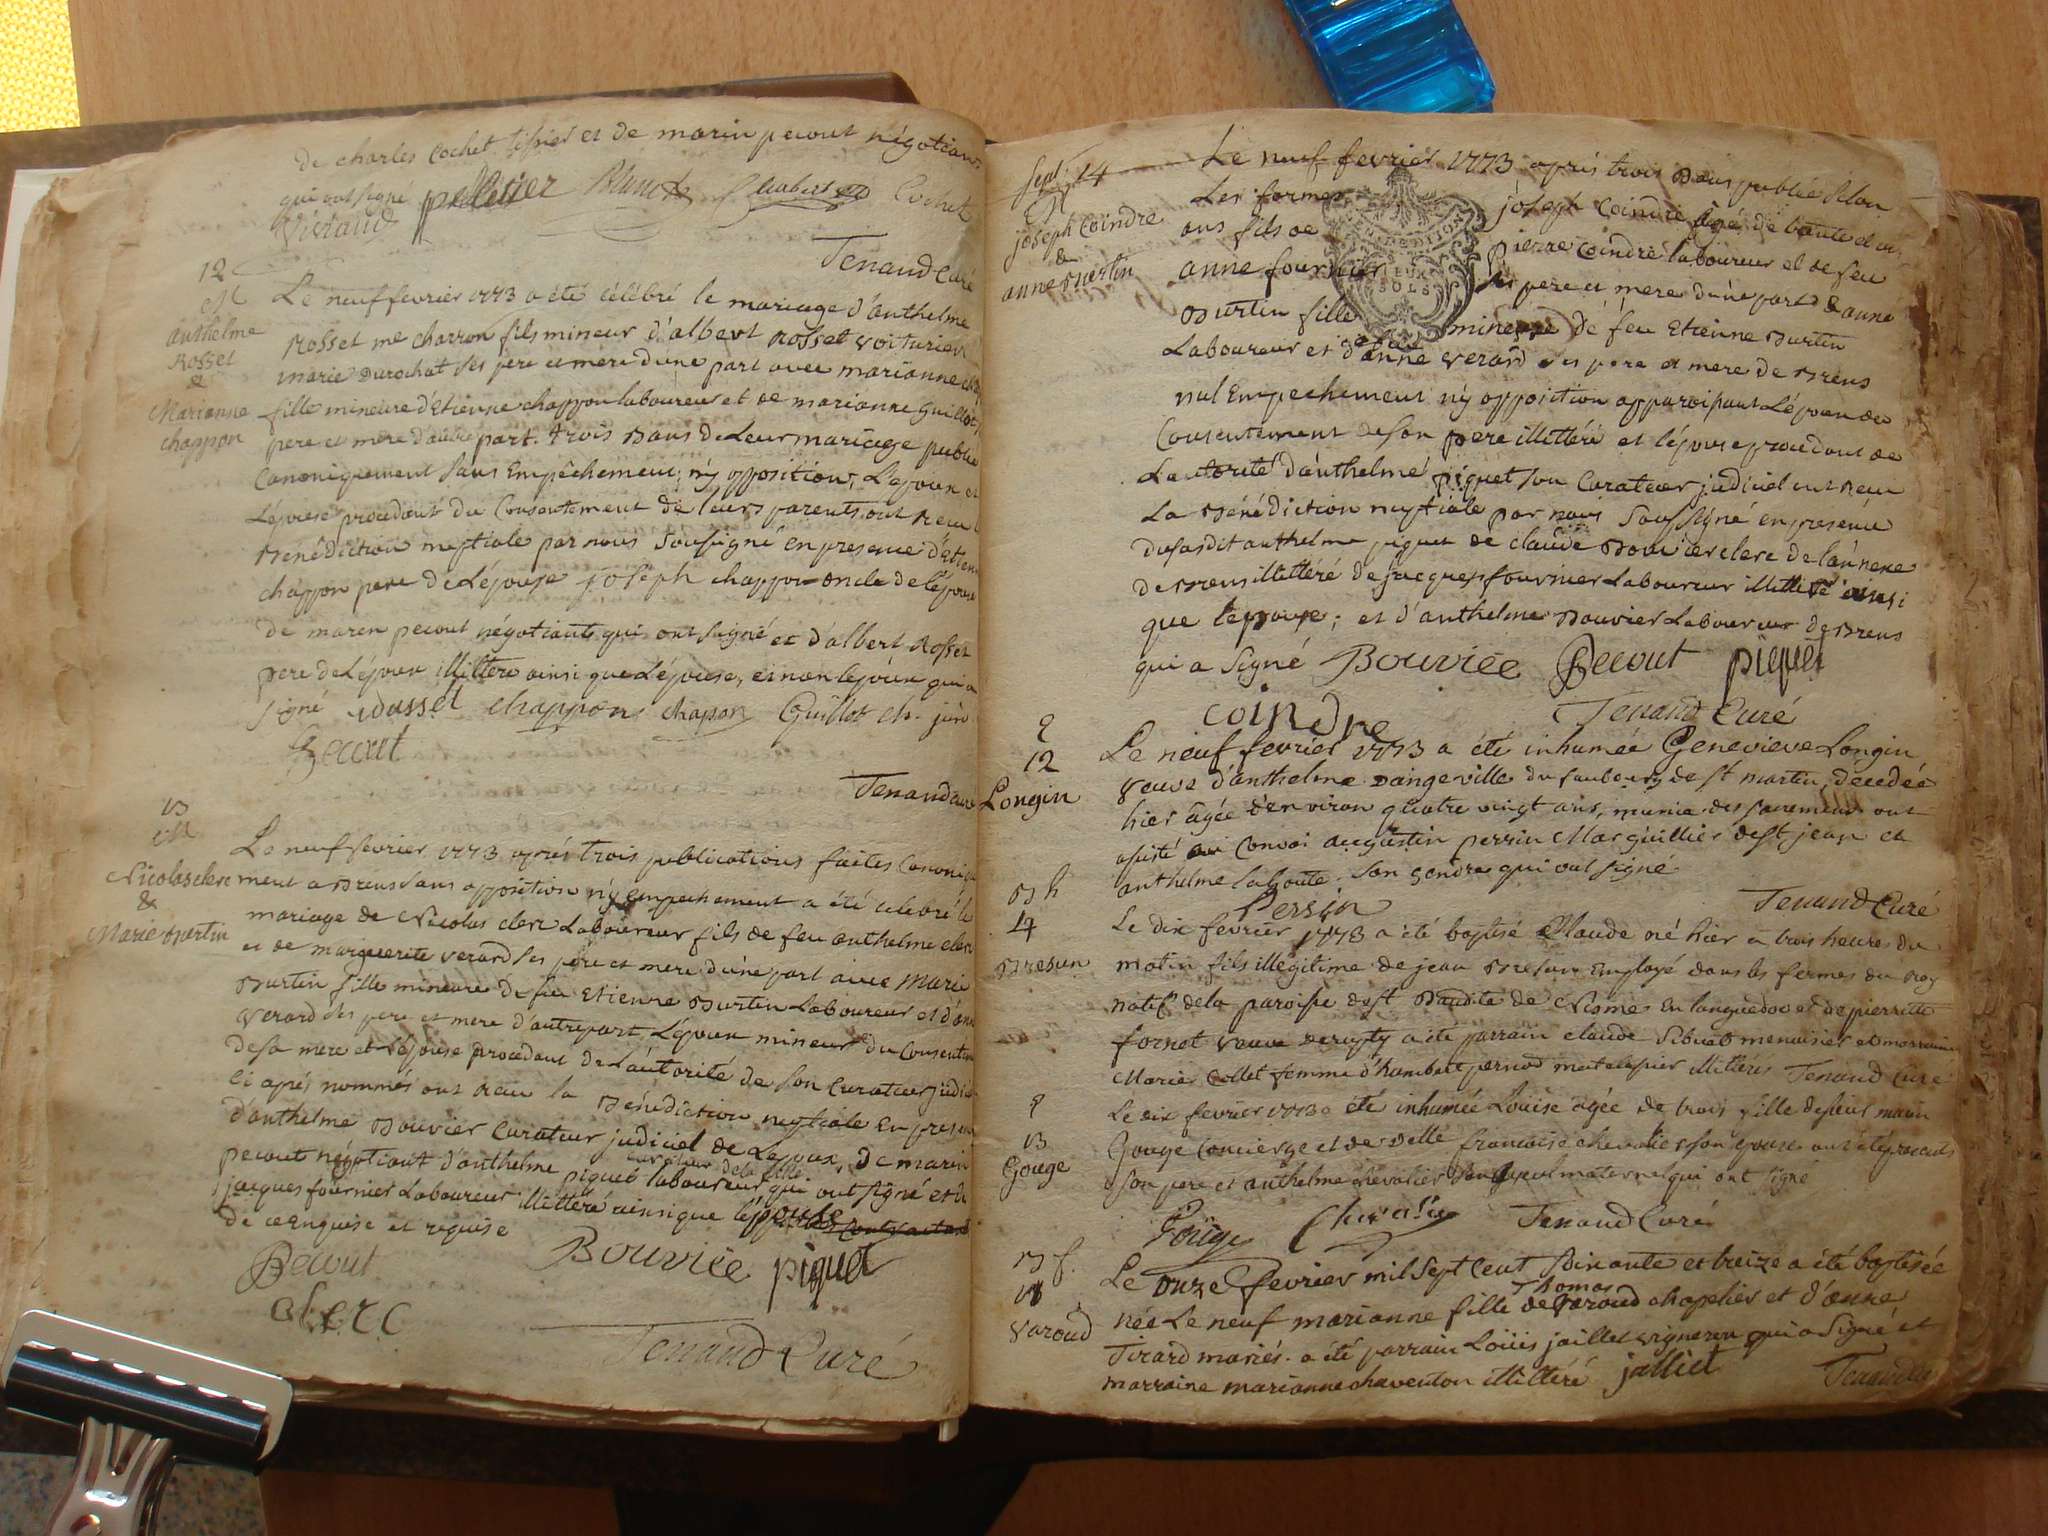 de charles Cochet tissier et de marin pecout négotiant
qui ont signé pelletier Blanch Cochet
Vivrand
Tenand Curé
12
M
anthelme
Rosset
&
Marianne
chappon
Le neuf fevrier 1773 a été célébré le mariage d'anthelme
Rosset me charron fils mineur d'albert Rosset voiturier
marie Durochat ses pere et mere d'une part avec marianne
fille mineure d'Etienne chappon laboureur et de marianne Guillot,
pere et mere d'autre part. trois Bans de Leur mariage publié
Canoniquement sans Empêchement, n'y opposition, L'epoux et
L'epouse procedant du Consentement de leurs parents ont Reçu
Bénédiction nuptiale par nous Soussigné en presence d'etienne
chappon pere de L'épouse joseph chappon oncle de l'epouse
de maren pecout négotiants qui ont signé et d'albert Rosset
pere de L'époux illittéré ainsi que L'épouse, et non l'époux qui a
signé Rosset chappon chapon Guillot ch. jun
Pecout
Tenand curé
13
M
Nicolas clerc
&
Marie Burtin
Le neuf fevrier 1773 après trois publications faites Canonique
ment a Brens sans opposition n'y empechement a été celebré le
mariage de Nicolas clerc Laboureur fils de feu anthelme clerc
et de marguerite verard ses pere et mere d'une part avec Marie
Burtin fille mineure de feu Etienne Burtin Laboureur et d'anne
Verard ses pere et mere d'autre part. L'époux mineur du Consentement
de sa mere et L'épouse procedant de L'autorité de son Curateur judiciel
Ci après nommés ont Reçu la Bénédiction nuptiale En presence
d'anthelme Bouvier Curateur judiciel de L'epoux, de marin
pecout négotiant d'anthelme piquet laboureur curateur de la fille qui ont signé et de
jacques fournier Laboureur illittéré ainsi que l'épouse
de ce Enquise et requise
Pecout Bouviée piquet
clerc
Tenand Curé
Sept. 14
M
joseph Coindre
&
anne Burtin
Le neuf fevrier 1773 après trois Bans publié selon
Les formes joseph Coindre âgé de trente et un
ans fils de Pierre Coindre laboureur et de feu
anne fournier ses pere et mere d'une part & anne
Burtin fille mineure de feu Etienne Burtin
Laboureur et d'anne verard ses pere et mere de Brens
nul Empechement n'y opposition apparoissant L'époux de
Consentement de son pere illittéré et l'épouse procedant de
L'autorité d'anthelme piquet son Curateur judiciel ont Reçu
La Bénédiction nuptiale par nous Soussigné en presence
du susdit anthelme piquet de claude Bouvier clerc de l'annexe
de Brens illittéré de jacques fournier Laboureur illittéré ainsi
que l'epouse; et d'anthelme Bouvier Laboureur de Brens
qui a signé Bouviée Pecout piquet
coindre Tenand Curé
12
Longin
Le neuf fevrier 1773 a été inhumée Genevieve Longin
veuve d'anthelme Dangeville du faubourg de St martin, decedée
hier âgée d'environ quatre vingt ans, munie des sacrements ont
assisté au Convoi augustin perrin Marguillier de St jean et
anthelme laboute son gendre qui ont signé
Persin Tenand Curé
B h
14
Bresun
Le dix fevrier 1773 a été baptisé Claude né hier a trois heures du
matin fils illégitime de jean Bresun Employé dans les fermes du Roy
natif de la paroisse de St Baudile de Nismes En languedoc et de pierrette
fornet veuve a été parrain claude Sibuet menuisier et marraine
Marie Collet femme d'humbert pernod matelassier illittérés Tenand Curé
13
Gouge
Le dix fevrier 1773 a été inhumée Loüise agée de trois fille de sieur marin
Gouge Concierge et de Delle francoise chevalier son épouse ont été presents
son pere et anthelme chevalier son ayeul maternel qui ont signé
Gouge Chevalier Tenand Curé
B f.
Varoud
Le onze fevrier mil sept cent soixante et treize a été baptisée
née Le neuf marianne fille de Thomas Varoud chapelier et d'anne
Tirard mariés. a été parrain Loüis jaillet vigneron qui a signé et
marraine marianne chaventon illittéré jalliet Tenand